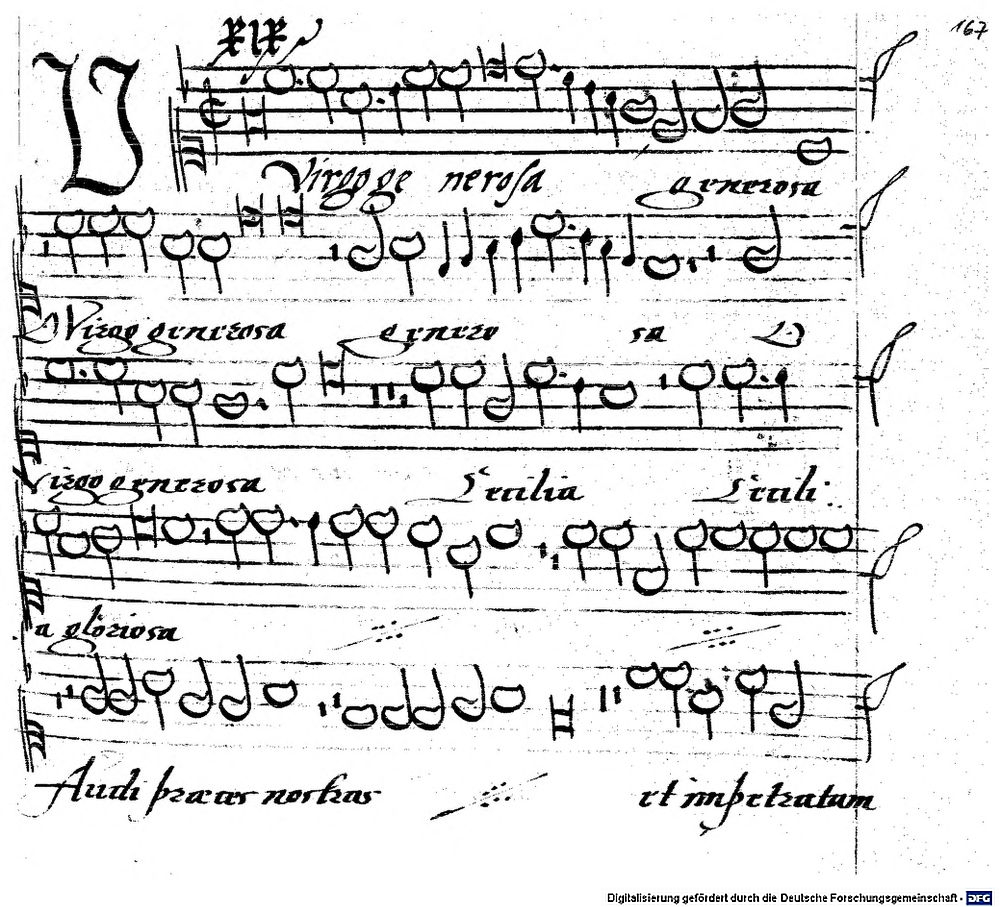 XIX
167
V
Virgo ge nerosa generosa
Virgo generosa genero sa
Virgo generosa Cecilia Cecili
a gloriosa
Audi præces nostras et impetratam
Digitalisierung gefördert durch die Deutsche Forschungsgemeinschaft - DFG